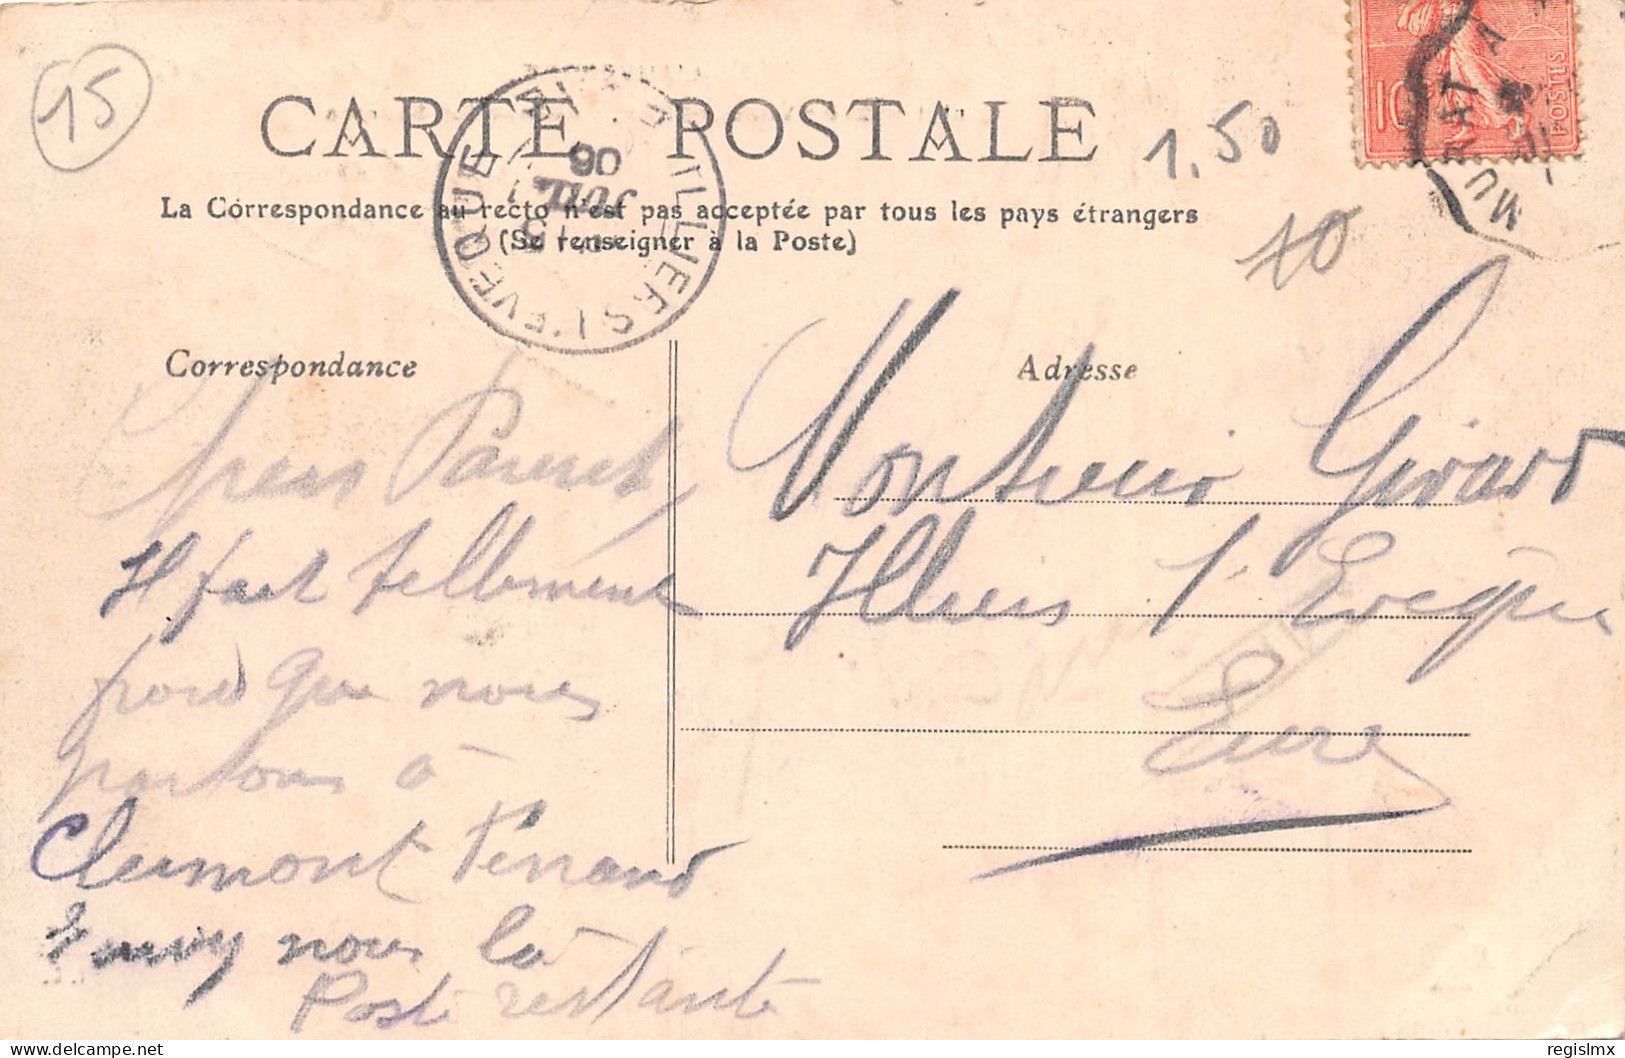 15
CARTE POSTALE
1.50
La Correspondance au recto n'est pas acceptée par tous les pays étrangers
(Se renseigner à la Poste)
10
TILLIERES L'EVEQUE
JUIL
06
10
POSTES
MURAT A
Correspondance
Chers Parents
Il fait tellement
froid que nous
partons à
Clermont Ferrand
nous là
Poste restante
Adresse
Monsieur Girard
Illiers l'Evêque
Eure
delcampe.net
regislmx